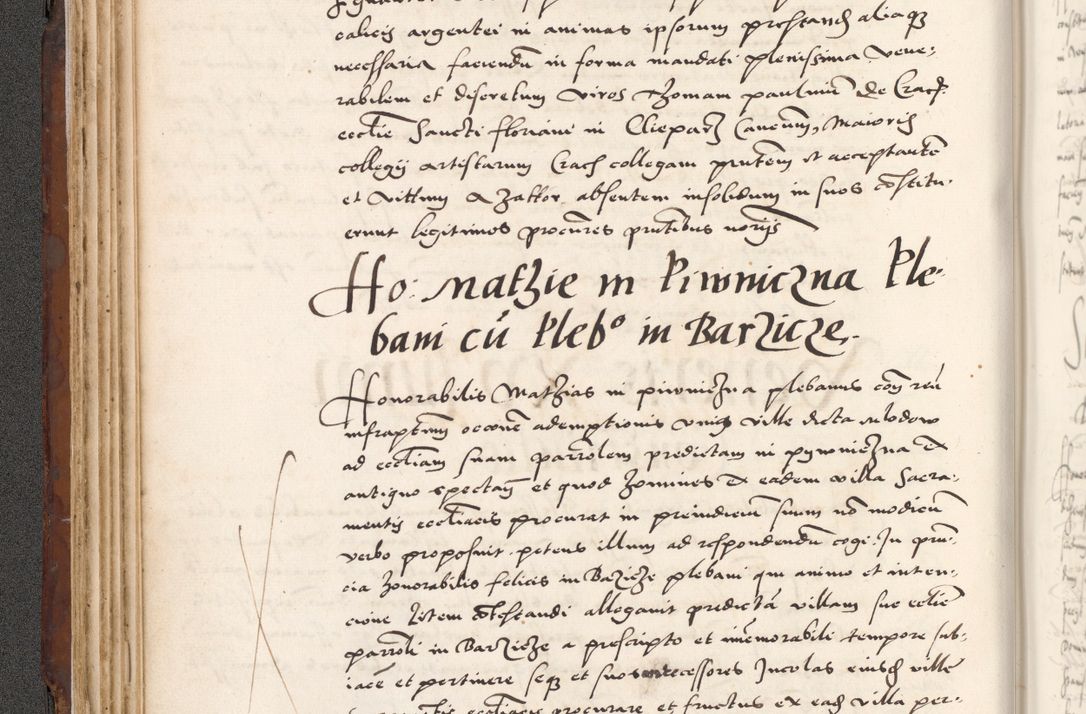 calicis argentei in animas ipsorum prestand aliaqȝ
necessaria faciendū in forma mandati plenissima vene-
rabilem et discretum viros Thomam paulinū de Crac
ecclie Sancti floriani in Clieparz Canonicū, Maioris
collegij artistarum Crac collegam pntem et acceptantē
et absentem insolidum in suos cōstitu-
erunt legitimos procures pntibus
Ho: Mathie in Piwniczna Ple-
bani cū Plebº in Barzicze.
Honorabilis Mathias in piwniczna plebanus cōn reū
infrascptum occone ademptionis vnius ville dicta mlodow
ad eccliam suam parrolem predictam in pywniczna ex
antiquo spectan et quod homines ex eadem villa Sacra-
mentis ecclïacis procurat in preiudiciū suum nō modicū
verbo proposuit petens illum ad respondendū cogi. In pñ-
cia honorabilis felicis in Barzicze plebani qui animo et inten-
cione litem cōtestandi allegauit predictā villam sue ecclie
parroli in Barzicze a prescripto et imemorabili tempore sub-
iace et pertinere seqȝ et suos antecessores Incolas eiusd ville
ecclïacis procurare et fructus ex ead villa per-